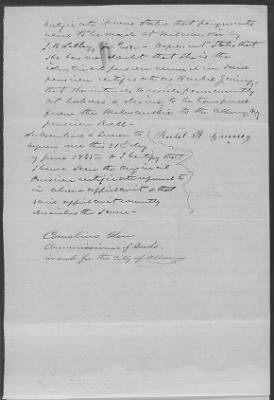 certificate it was stated that payments
were to be made at Milwaukie by
that
she has no doubt that she is the
identical person named in said
pension certificate as Rachel
that she intends to reside permanently
at Cohoes & desires to be transferred
from the Milwaukie to the Albany
pension Roll—
Subscribed & sworn to
before me this 21st day
of June 1865 & I certify that
I have seen the original
Pension certificate referred to
in above affidavit & that
said affidavit correctly
describes the same—
Cornelius Glen
Commissioner of Deeds
in and for the City of Albany